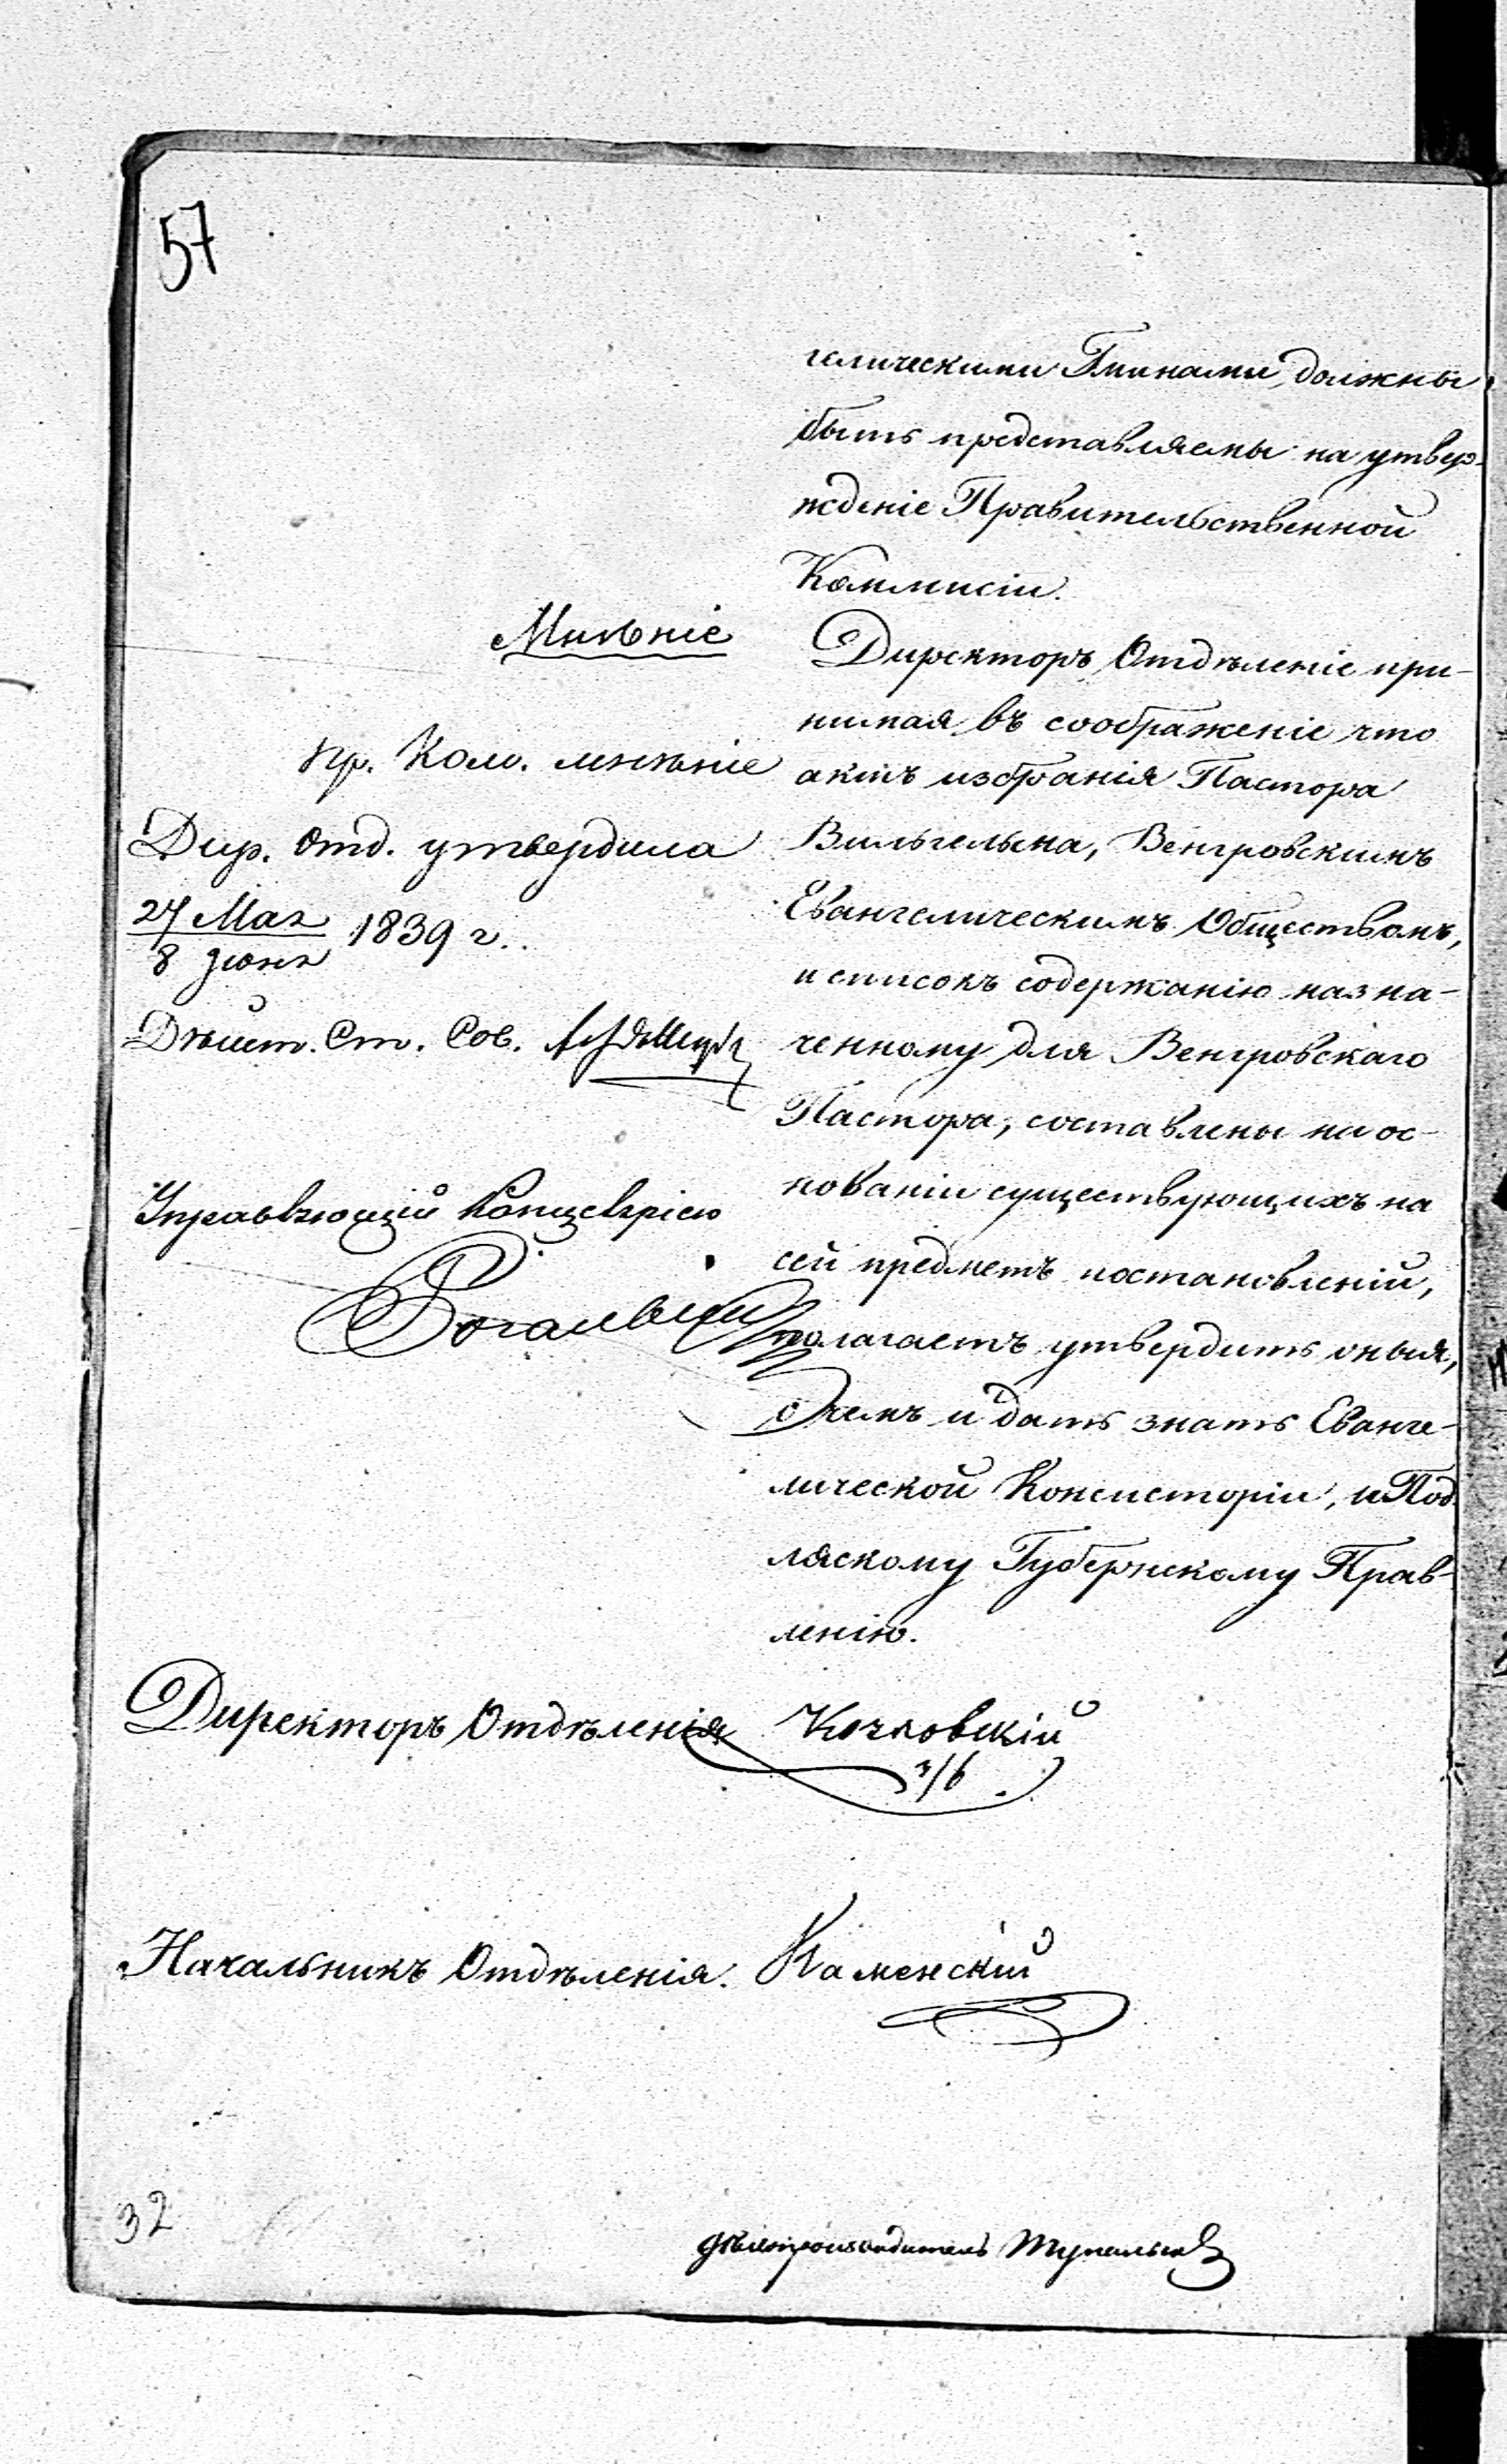 57
гелическими Гминами, должны
быть представляемы на утвер-
жденіе Правительственной
Коммисіи.
Мнѣніе
Директоръ Отдѣленіе при-
нимая въ соображеніе что
актъ избранія Пастора
Вильгельма, Венгровскимъ
Евангелическимъ Обществомъ,
и списокъ содержанію назна-
ченному для Венгровскаго
Пастора, составлены на ос-
нованіи существующихъ на
сей предметъ постановленій,
полагаетъ утвердить оныя,
О чемъ и дать знать Еванге-
лической Консисторіи, и Под-
ляскому Губернскому Прав-
ленію.
пр. Ком. мнѣніе
Дир. Отд. утвердила
27 Мая
8 Іюня 1839 г.
Дѣйст. Ст. Сов.
Управляющій Канцеляріею
Директоръ Отдѣленія
Начальникъ Отдѣленія. Каменскій
Дѣлопроизводитель
32